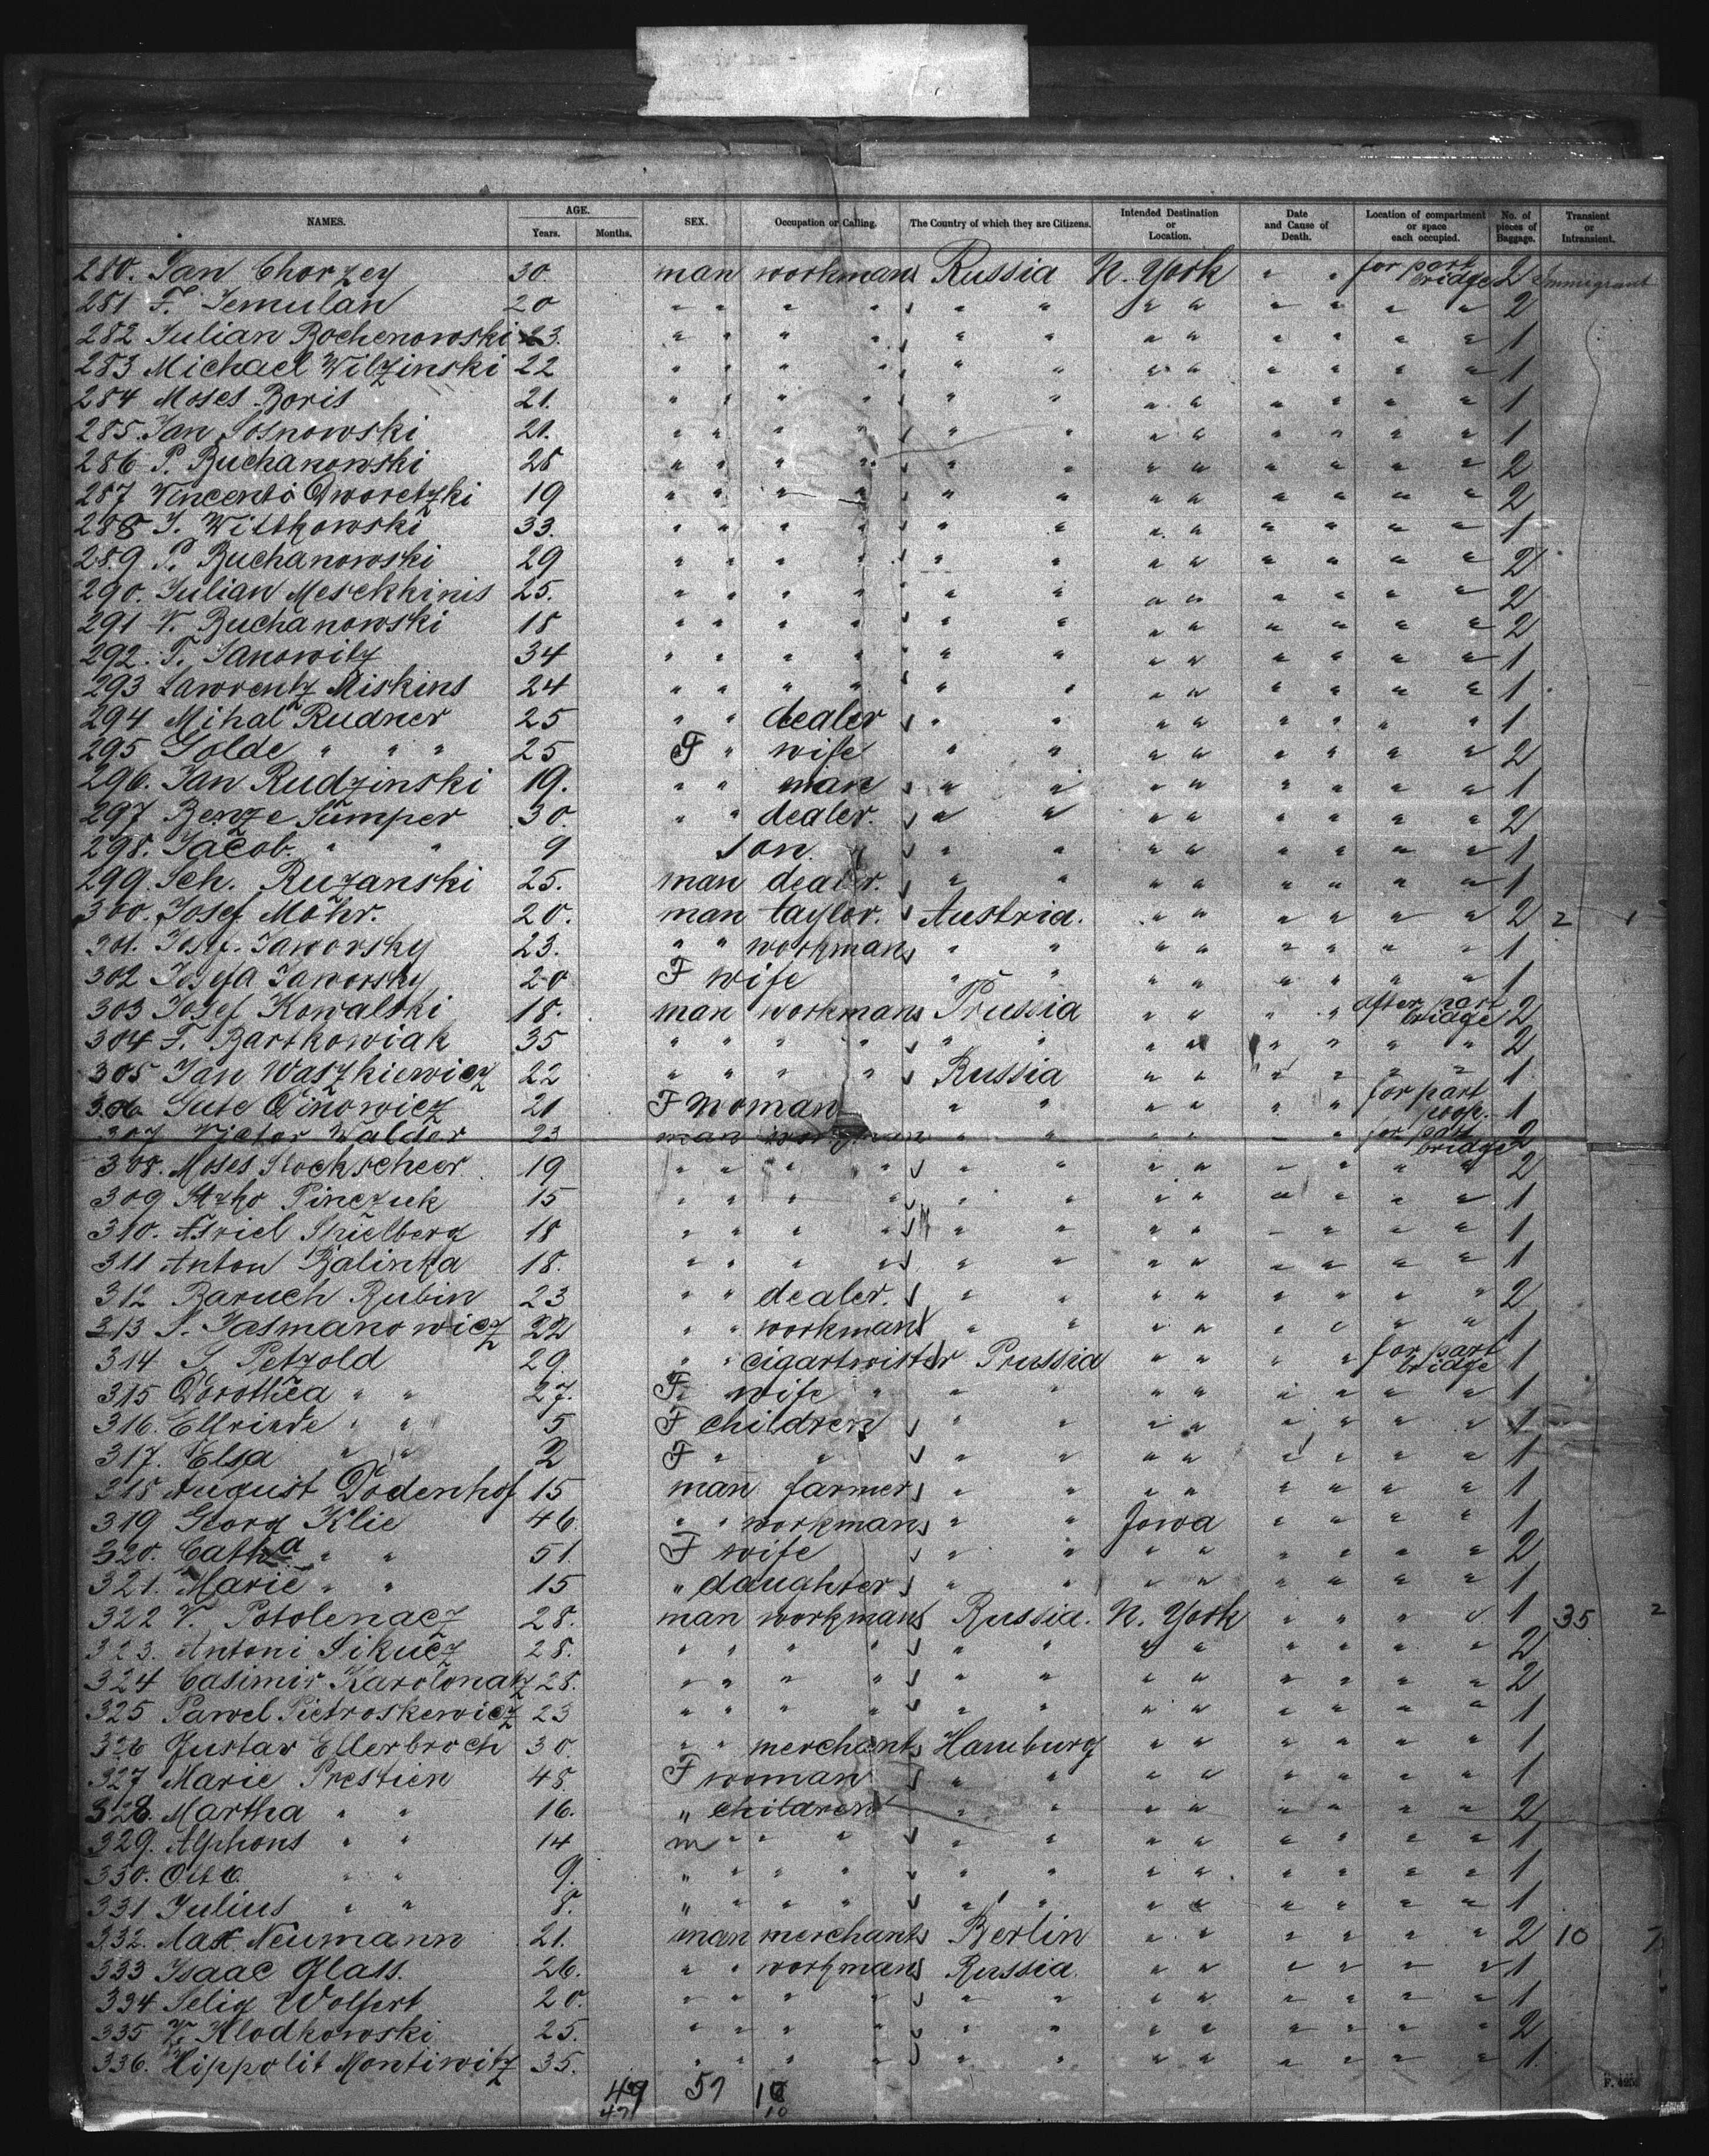 NAMES. AGE. Years. Months. SEX. Occupation or Calling. The Country of which they are Citizens. Intended Destination or Location. Date and Cause of Death. Location of compartment or space each occupied. No. of pieces of Baggage. Transient or Intransient.
280. Jan Chorzey 30. man workman Russia N. York " " for part bridge 2 Immigrant
281 F. Jemulan 20 " " " " " " " " " " " " 2
282 Julian Bochenowski 23. " " " " " " " " " " " " 1
283 Michael Wilzinski 22 " " " " " " " " " " " " 1
284 Moses Boris 21. " " " " " " " " " " " " 1
285. Jan Sosnowski 21. " " " " " " " " " " " " 1
286 P. Buchanowski 28 " " " " " " " " " " " " 2
287 Vincento Dworetzki 19 " " " " " " " " " " " " 2
288 J. Wittkowski 33. " " " " " " " " " " " " 1
289 P. Buchanowski 29 " " " " " " " " " " " " 2
290. Julian Meschkinis 25. " " " " " " " " " " " " 2
291 V. Buchanowski 18 " " " " " " " " " " " " 2
292. T. Janowitz 34 " " " " " " " " " " " " 1
293 Lawrentz Miskins 24 " " " " " " " " " " " " 1
294 Mihal Rudner 25 " " dealer " " " " " " " " 1
295 Golde " " " 25 F " wife " " " " " " " " 2
296. Jan Rudzinski 19. " " man " " " " " " " " 1
297 Benze Sumper 30. " " dealer. " " " " " " " " 2
298. Jacob. " " 9 son. " " " " " " " " 1
299. Sch. Ruzanski 25. man dealer. " " " " " " " " 1
300. Josef Mohr. 20. man taylor. Austria. " " " " " " 2 2 1
301. Josf. Jaworsky 23. " " workman " " " " " " " " 1
302 Josefa Jaworsky 20 F wife " " " " " " " " 1
303 Josef Kowalski 18. man workman Prussia " " " " after part bridge 2
304 F. Bartkowiak 35 " " " " " " " " " " " " 2
305 Jan Waszkiewicz 22 " " " " Russia " " " " " " 1
306 Gute Dinowicz 21 F woman " " " " " " for part poop. 1
307 Victor Walder 23 man workman " " " " " " for part bridge 2
308. Moses Stockscheer 19 " " " " " " " " " " " " 2
309 Pinczuk 15 " " " " " " " " " " " " 1
310. Asriel Spielberg 18 " " " " " " " " " " " " 1
311 Anton Balinka 18. " " " " " " " " " " " " 1
312 Baruch Rubin 23 " " dealer. " " " " " " " " 2
313 S. Jasmanowicz 22 " " workman " " " " " " " " 1
314 S. Petzold 29. " " cigartwister Prussia " " " " for part bridge 1
315 Dorothea " " 27. F. wife " " " " " " " " " 1
316. Elfriede " " 5 F children " " " " " " " " 1
317. Elsa " " 2 F " " " " " " " " " " 1
318 August Dodenhof 15 man farmer " " " " " " " " 1
319 Georg Klie 46. " " workman " " Iowa " " " " 1
320. Catha " " 51. F wife " " " " " " " " 2
321. Marie " " 15 " daughter " " " " " " " " 1
322 V. Potolenacz 28. man workman Russia. N. York " " " " 1 35 2
323. Antoni Sikucz 28. " " " " " " " " " " " " 2
324 Casimir Karolonatz 28. " " " " " " " " " " " " 2
325 Pawel Pietroskewicz 23 " " " " " " " " " " " " 1
326 Gustav Ellerbroch 30. " " merchant Hamburg " " " " " " 1
327 Marie Prestien 48. F woman " " " " " " " " 1
328. Martha " " 16. " children " " " " " " " " 2
329. Alphons " " 14 m " " " " " " " " " " 1
330. Otto. " " 9. " " " " " " " " " " " 1
331 Julius " " 8. " " " " " " " " " " " 1
332. Max Neumann 21. man merchant Berlin " " " " " " 2 10 7
333 Isaac Glass. 26. " " workman Russia. " " " " " " 1
334 Selig Wolfert 20. " " " " " " " " " " " " 1
335 V. Klodkowski 25. " " " " " " " " " " " " 2
336. Hippolit Montiwitz 35. " " " " " " " " " " " " 1
49 57 10
47 10